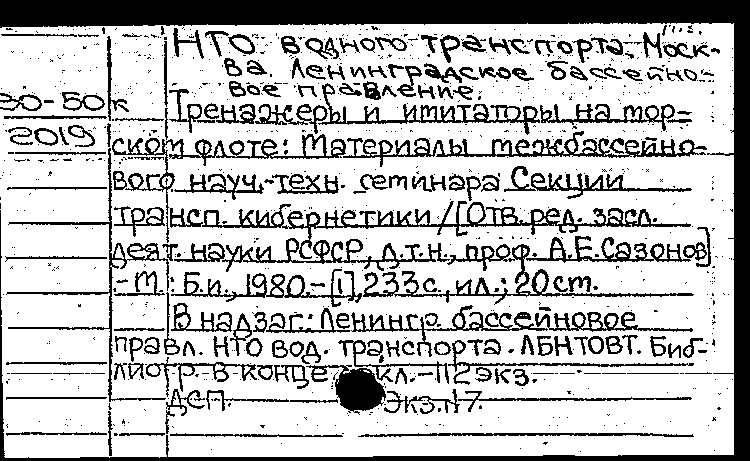 НТО водного транспорта. Моск-
ва. Ленинградское бассейно-
вое правление.
30-50к Тренажеры и имитаторы на мор-
2019 ском флоте: Материалы межбассейно-
вого науч.-техн. семинара Секции
трансп. кибернетики / [Отв. ред. засл.
деят. науки РСФСР, д.т.н., проф. А.Е. Сазонов]
- М.: Б.и., 1980. - [1], 233 с., ил.; 20 см.
В надзаг.: Ленингр. бассейновое
правл. НТО вод. транспорта. ЛБНТОВТ. Биб-
лиогр. в конце докл. - 112 экз.
ДСП. Экз. №7.